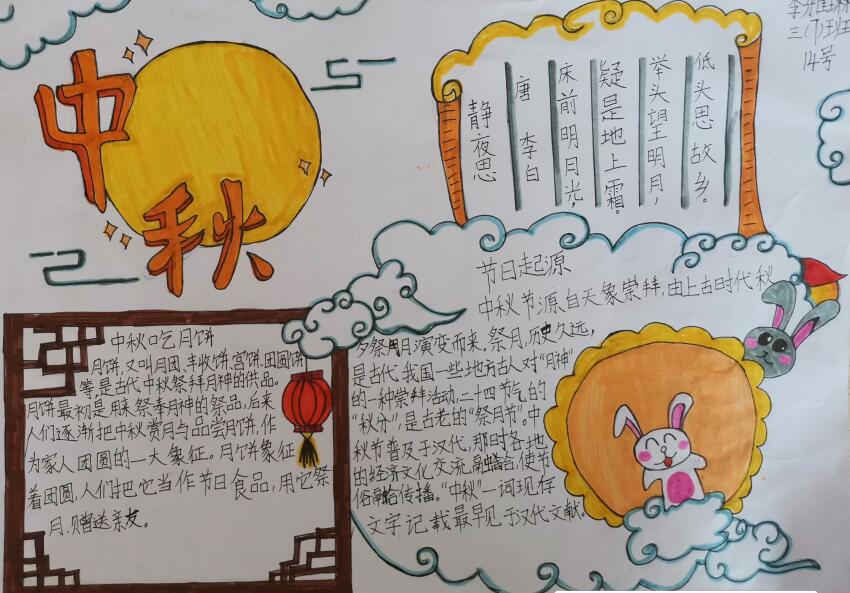 中秋
三(7)班
14号
静夜思
唐 李白
床前明月光，
疑是地上霜。
举头望明月，
低头思故乡。
节日起源
中秋节源自天象崇拜，由上古时代秋
夕祭月演变而来。祭月，历史久远，
是古代我国一些地方古人对“月神”
的一种崇拜活动，二十四节气的
“秋分”，是古老的“祭月节”。中
秋节普及于汉代，那时各地
的经济文化交流融合，使节
俗融合传播。“中秋”一词现存
文字记载最早见于汉代文献。
中秋吃月饼
月饼，又叫月团、丰收饼、宫饼、团圆饼
等，是古代中秋祭拜月神的供品。
月饼最初是用来祭奉月神的祭品，后来
人们逐渐把中秋赏月与品尝月饼，作
为家人团圆的一大象征。月饼象征
着团圆，人们把它当作节日食品，用它祭
月，赠送亲友。